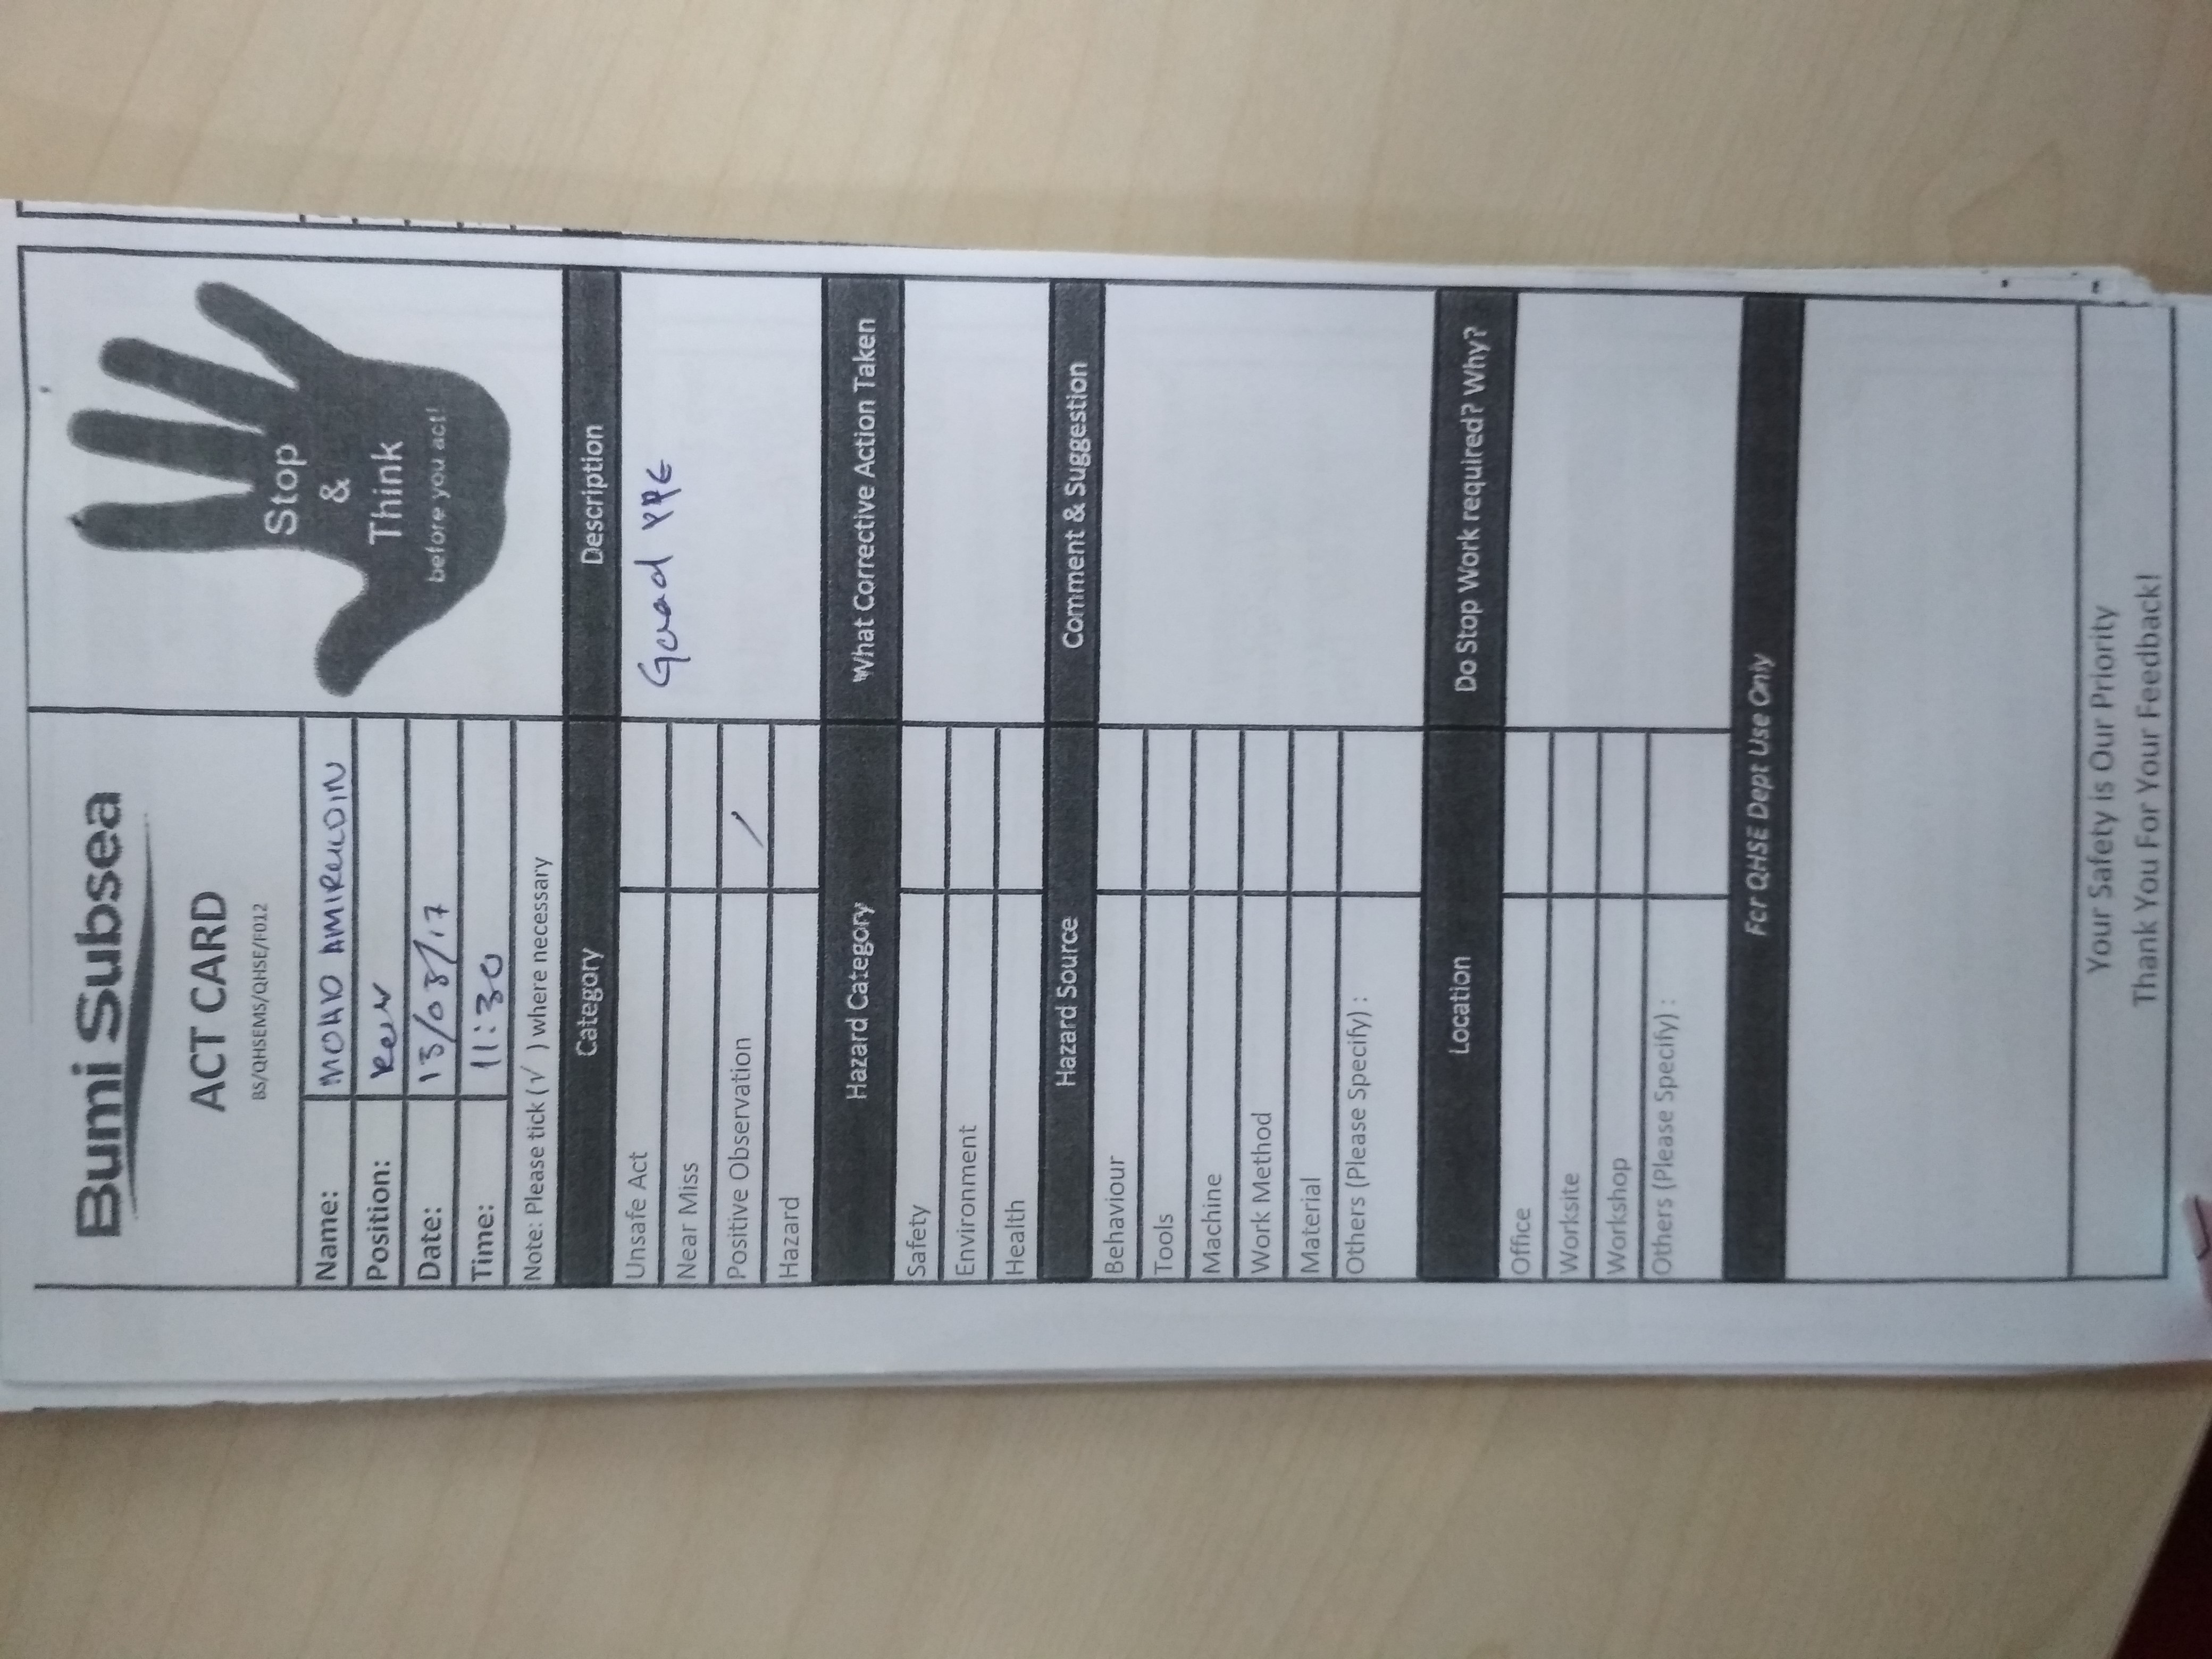 Bumi Subsea
ACT CARD
BS/QHSEMS/QHSE/F012
Stop
&
Think
before you act!
Name: MOHD AMIRRUDIN
Position:
Date: 13/08/17
Time: 11:30
Note: Please tick (√ ) where necessary
Category Description
Unsafe Act Good PPE
Near Miss
Positive Observation /
Hazard
Hazard Category What Corrective Action Taken
Safety
Environment
Health
Hazard Source Comment & Suggestion
Behaviour
Tools
Machine
Work Method
Material
Others (Please Specify) :
Location Do Stop Work required? Why?
Office
Worksite
Workshop
Others (Please Specify) :
For QHSE Dept Use Only
Your Safety is Our Priority
Thank You For Your Feedback!